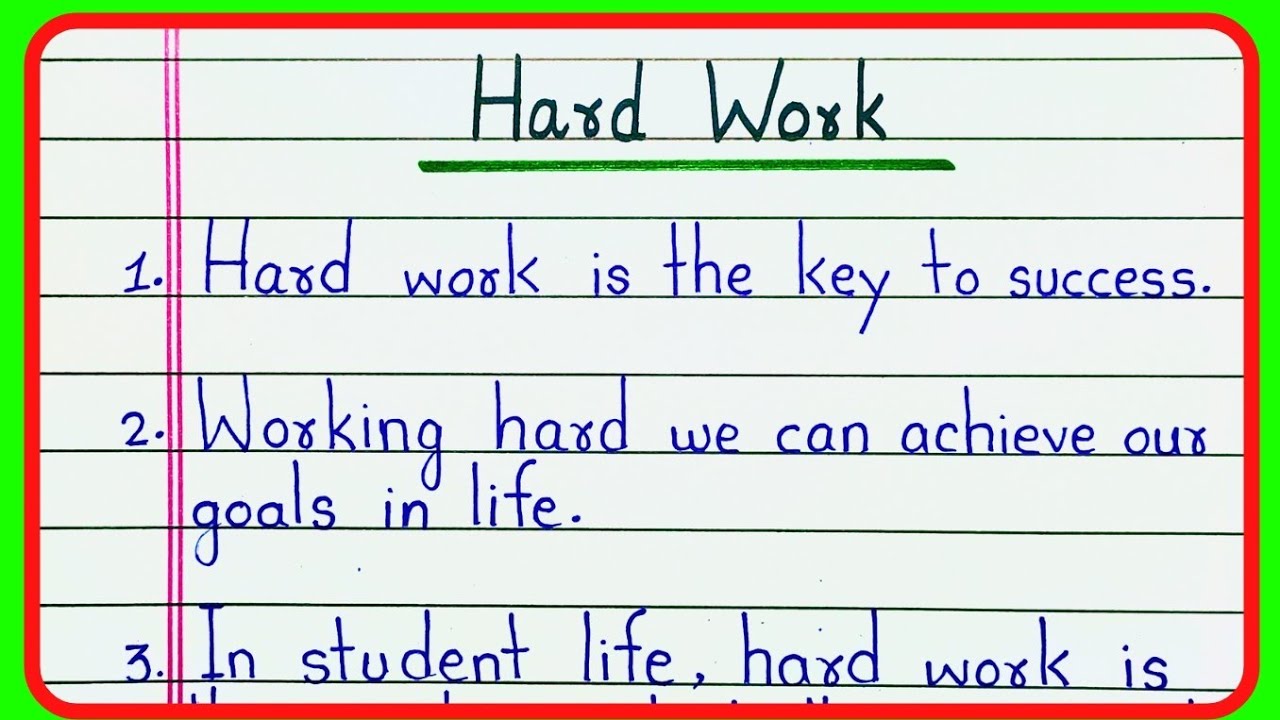 Hard Work
1. Hard work is the key to success.
2. Working hard we can achieve our
goals in life.
3. In student life, hard work is